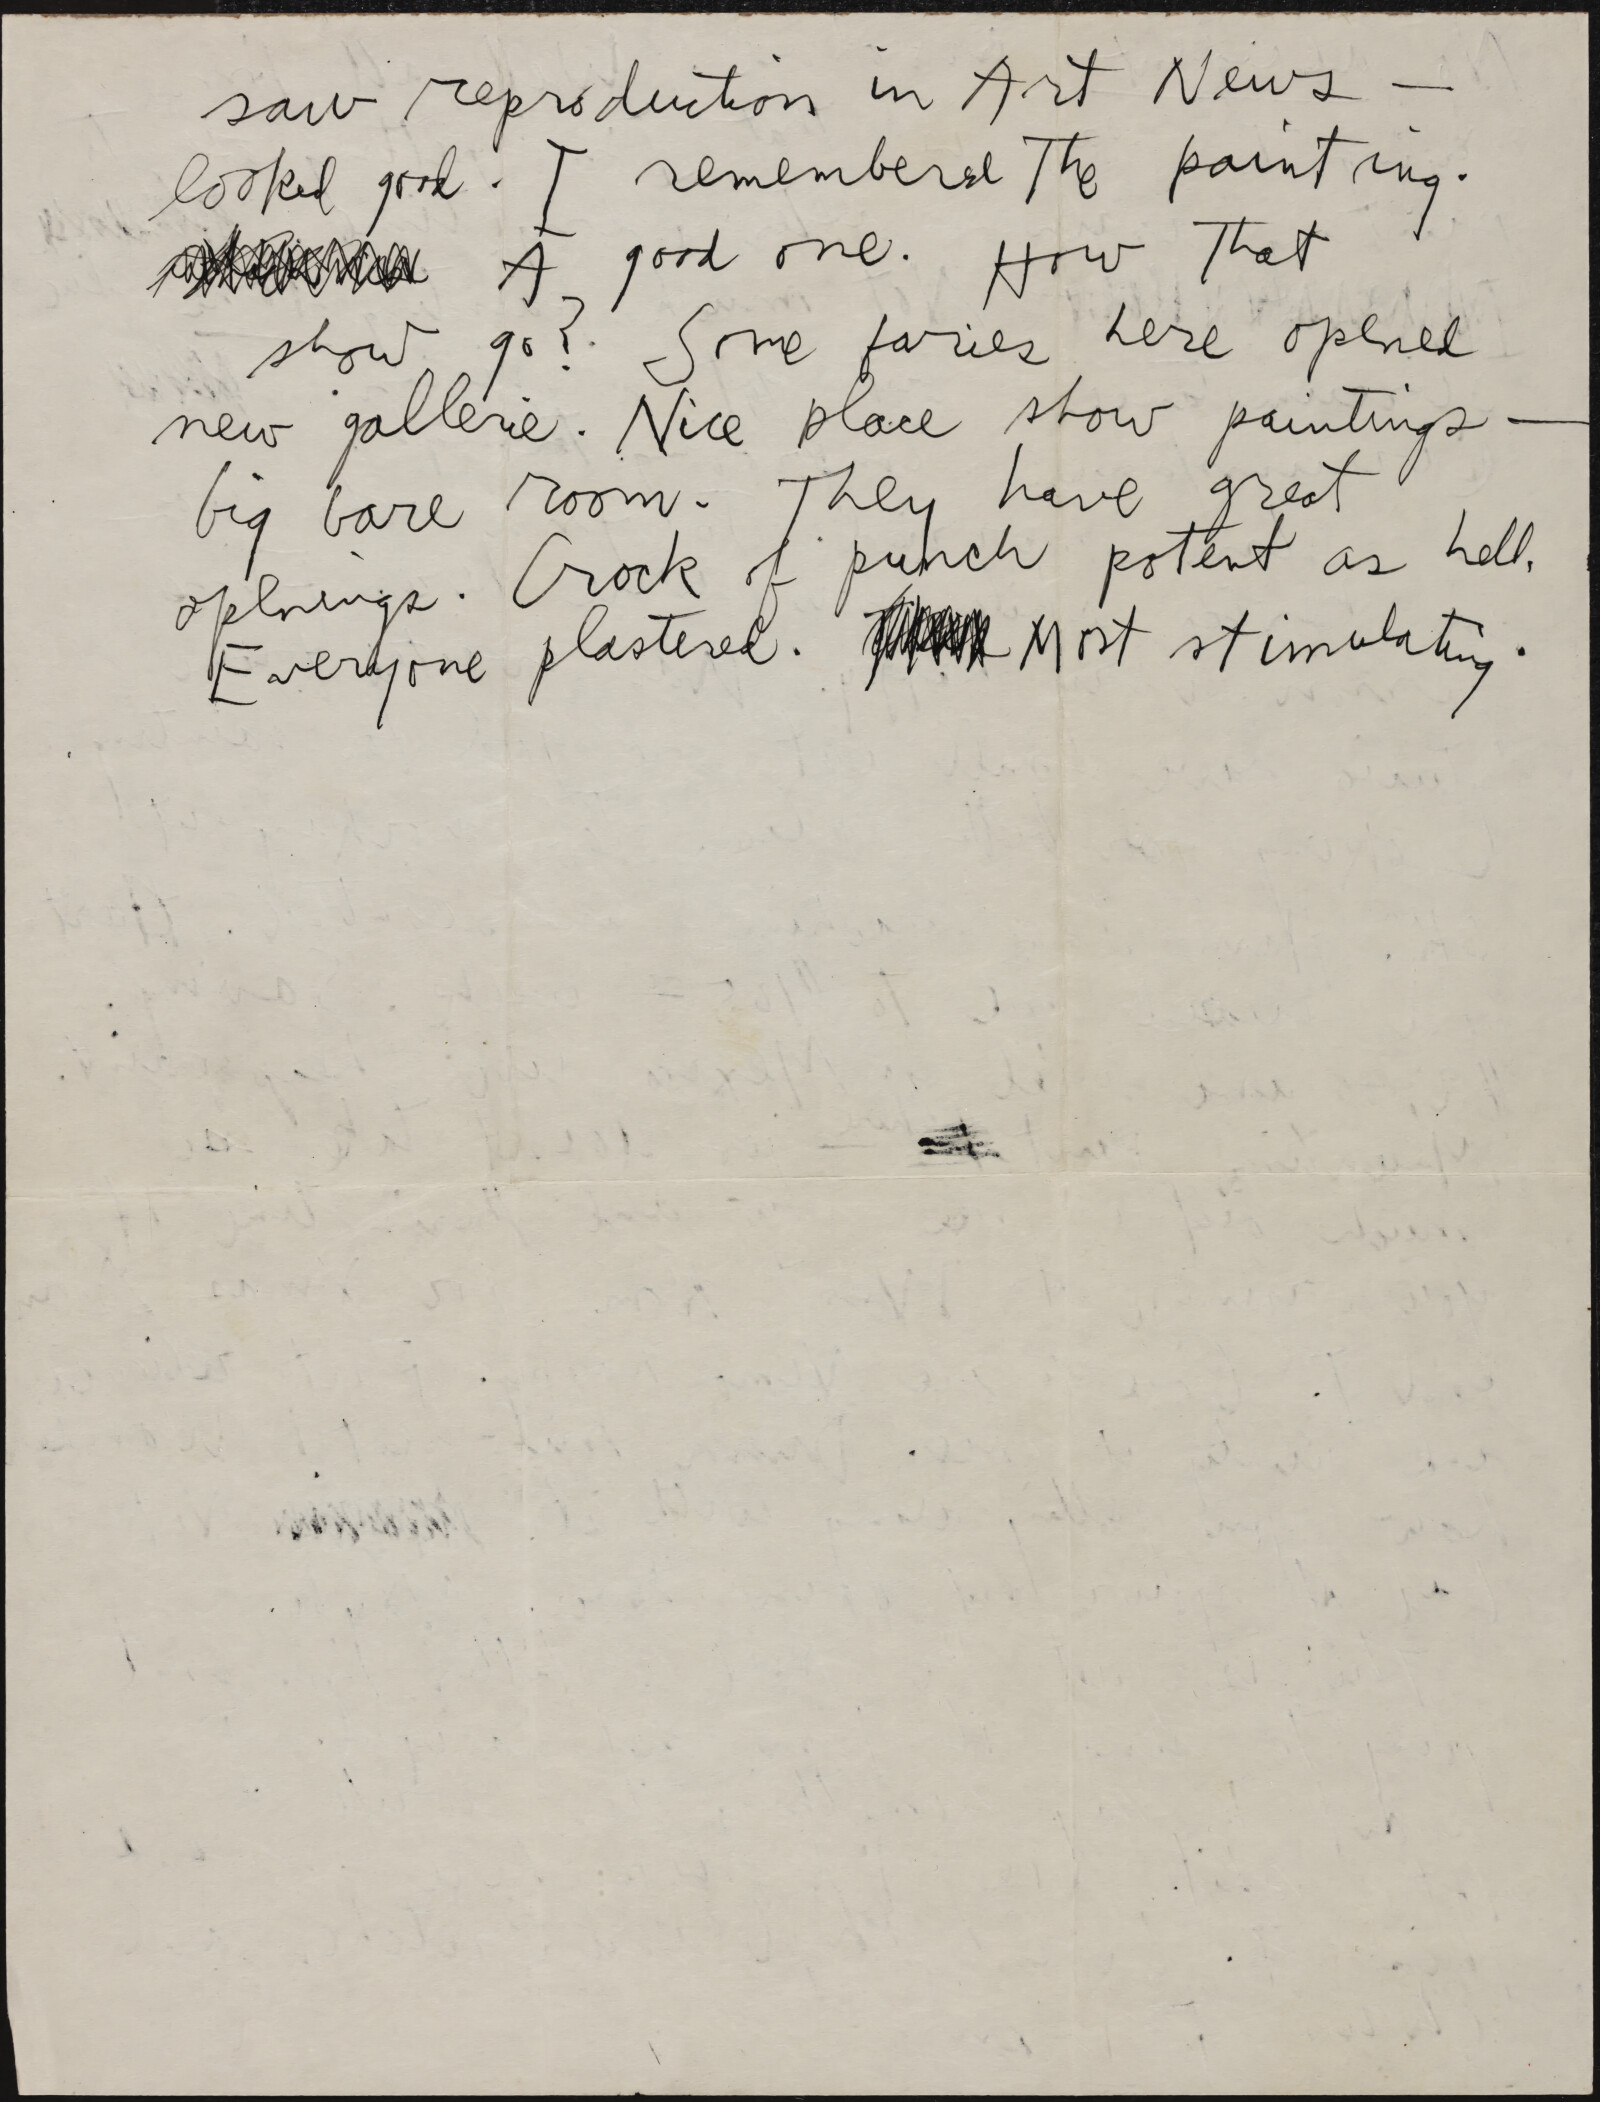 saw reproduction in Art News —
looked good. I remembered The painting.
A good one. How That
show go? Some faries here opened
new gallerie. Nice place show paintings —
big bare room. They have great
openings. Crock of punch potent as hell.
Everyone plastered. Most stimulating.